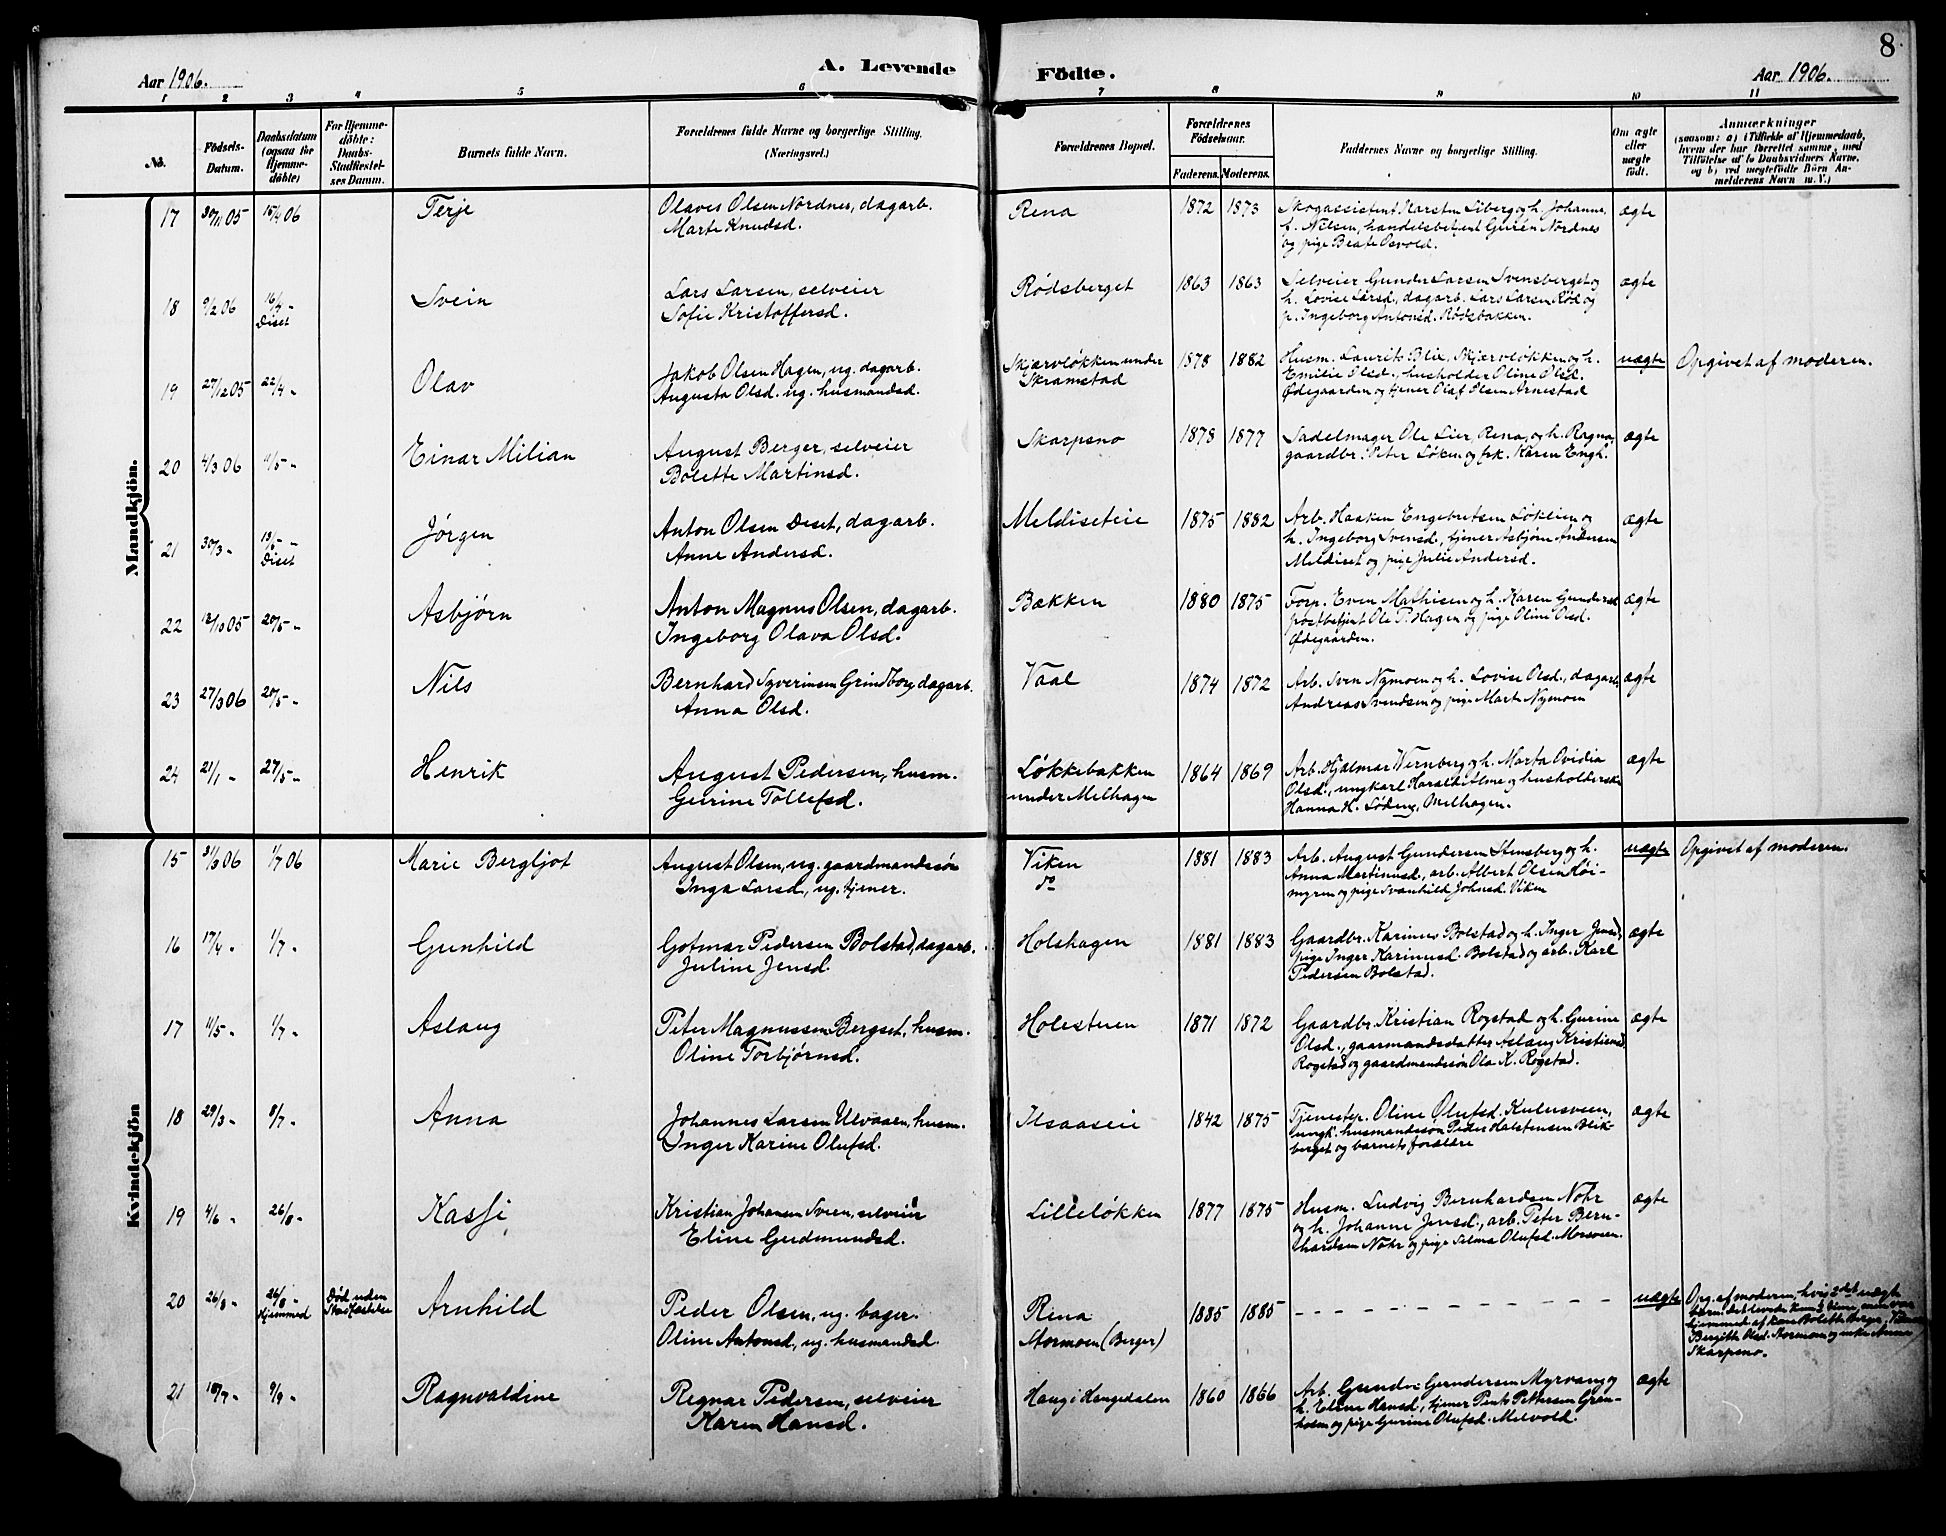 8
Aar 1906.
A. Levende
Födte.
Aar 1906.
1 2 3 4 5 6 7 8 9 10 11
No.
Födsels-
Datum.
Daabsdatum
(ogsaa for
Hjemme-
döbte)
For Hjemme-
döbte:
Daabs-
Stadfæstel-
ses Datum.
Barnets fulde Navn.
Forældrenes fulde Navne og borgerlige Stilling.
(Næringsvei.)
Forældrenes Bopæl.
Forældrenes
Födselsaar.
Faderens. Moderens.
Faddernes Navne og borgerlige Stilling.
Om ægte
eller
uægte
født.
Anmærkninger
(saasom: a) i Tilfælde af Hjemmedaab,
hvem der har forrettet samme, med
Tilföielse af to Daabsvidners Navne,
og b) ved uægtefödte Börn An-
melderens Navn m. V.)
Mandkjön.
17 30/11 05 15/4 06 Terje
Olaves Olsen Nordnes, dagarb.
Marte Knudsd.
Rena 1872 1873
Skogassistent Karsten Liberg og h. Johanne,
f. Nilsen, handelsbetjent Nordnes
og pige Beate Osvold.
ægte
18 9/2 06 16/4 -
Diset
Svein
Lars Larsen, selveier
Sofie Kristoffersd.
Rødsberget 1863 1863
Selveier Gunder Larsen Svensberget og
h. Lovise Larsd., dagarb. Lars Larsen Rød og
p. Ingeborg Antonsd. Rødsbakken.
ægte
19 27/12 05 22/4 - Olav
Jakob Olsen Hagen, ug. dagarb.
Augusta Olsd. ug. husmandsd.
Skjærvløkken under
Skramstad
1878 1882
Husm. Laurits Blix, Skjærvløkken og h.
Emilie Olsd., husholder Oline Olsd.
Ødegaarden og tjener Olaf Olsen Arnestad
uægte
Opgivet af moderen.
20 4/3 06 /5 - Einar Milian
August Berger, selveier
Bolette Martinsd.
Skarpsno 1878 1877
Sadelmager Ole Lier, Rena, og h. Ragna,
gaardbr. Peter Løken og frk. Karen Engh.
ægte
21 30/3 - 13/5 -
Diset
Jørgen
Anton Olsen Deset, dagarb.
Anne Andersd.
Meldiseteie 1875 1882
Arb. Haaken Engebretsen Løklien og
h. Ingeborg Svensd., tjener Asbjørn Andersen
Meldiset og pige Julie Andersd.
ægte
22 12/10 05 20/5 - Asbjørn
Anton Magnus Olsen, dagarb.
Ingeborg Olava Olsd.
Bækken 1880 1875
Forp. Even Mathisen og h. Karen Gundersd.
postbetjent Ole P. Hagen og pige Oline Olsd.
Ødegaarden.
ægte
23 27/3 06 20/5 - Nils
Bernhard Syverinsen Grindborg dagarb.
Anna Olsd.
Vaal 1874 1872
Arb. Sven Nymoen og h. Lovise Olsd., dagarb.
Andreas Svendsen og pige Mart Nymoen
ægte
24 21/1 - 27/5 - Henrik
August Pedersen, husm.
Gurine Tollefsd.
Løkkebakken
under Melhagen
1864 1869
Arb. Hjalmar Wernberg og h. Marta Ovidia
Olsd., ungkarl Harald Alme og husholderske
Hanna H. Løding, Melhagen.
ægte
Kvindekjön
15 31/3 06 1/7 06 Marie Bergljot
August Olsen, ug. gaardmandssøn
Inga Larsd., ug. tjener.
Viken
do
1881 1883
Arb. August Gundersen Stensberg og h.
Anna Martinusd., arb. Albert Olsen Røi-
myren og pige Svanhild Johnsd. Viken
uægte
Opgivet af moderen.
16 17/4 - 1/7 - Gunhild
Gotmar Pedersen Bolstad, dagarb.
Juline Jensd.
Holshagen 1881 1883
Gaardbr. Karinus Bolstad og h. Inger Jensd,
pige Inger Karinusd. Bolstad og arb. Karl
Pedersen Bolstad.
ægte
17 11/5 - 1/7 - Aslaug
Peter Magnussen Bergset, husm.
Oline Torbjørnsd.
Holestuen 1871 1872
Gaardbr. Kristian Rogstad og h. Gurine
Olsd., gaarmandsdatter Aslaug Kristiansd.
Rogstad og gaardmandssøn Ola K. Rogstad.
ægte
18 29/3 - 8/7 - Anna
Johannes Larsen Ulvaaen, husm.
Inger Karine Olufsd.
Ilsaaseie 1842 1875
Tjenestep. Oline Olufsd. Kulusveen,
ungk. husmandssøn Peder Halstensen Blik-
berget og barnets forældre
ægte
19 4/6 - 26/8 - Kassi
Kristian Johansen Sveen, selveier
Eline Gudmundsd.
Lilleløkken 1877 1875
Husm. Ludvig Bernhardsen Nohr
og h. Johanne Jensd., arb. Peter Bern-
hardsen Nohr og pige Selma Olufsd. Mosveen.
ægte
20 26/8 - 26/8 -
Hjemmed
Død uden
Stadfæstelse
Arnhild
Peder Olsen, ug. bager.
Oline Antonsd., ug. husmandsd.
Rena
Stormoen (Berger)
1885 1885
uægte
Opg. af moderen, hvis 2det uægte
barn. Det levede kun
hjemmed af kone Bolette Berger,
Bergitte Olsd. Stormoen og enke Anne
Skarpsno.
21 10/7 - 9/9 - Ragnvaldine
Regnar Pedersen, selveier
Karen Hansd.
Haug i Haugedalen 1860 1866
Arb. Gundersen Myrvang og
h. Eline Hansd., tjener Pettersen Gran-
holm og pige Gurine Olufsd. Melvold.
ægte